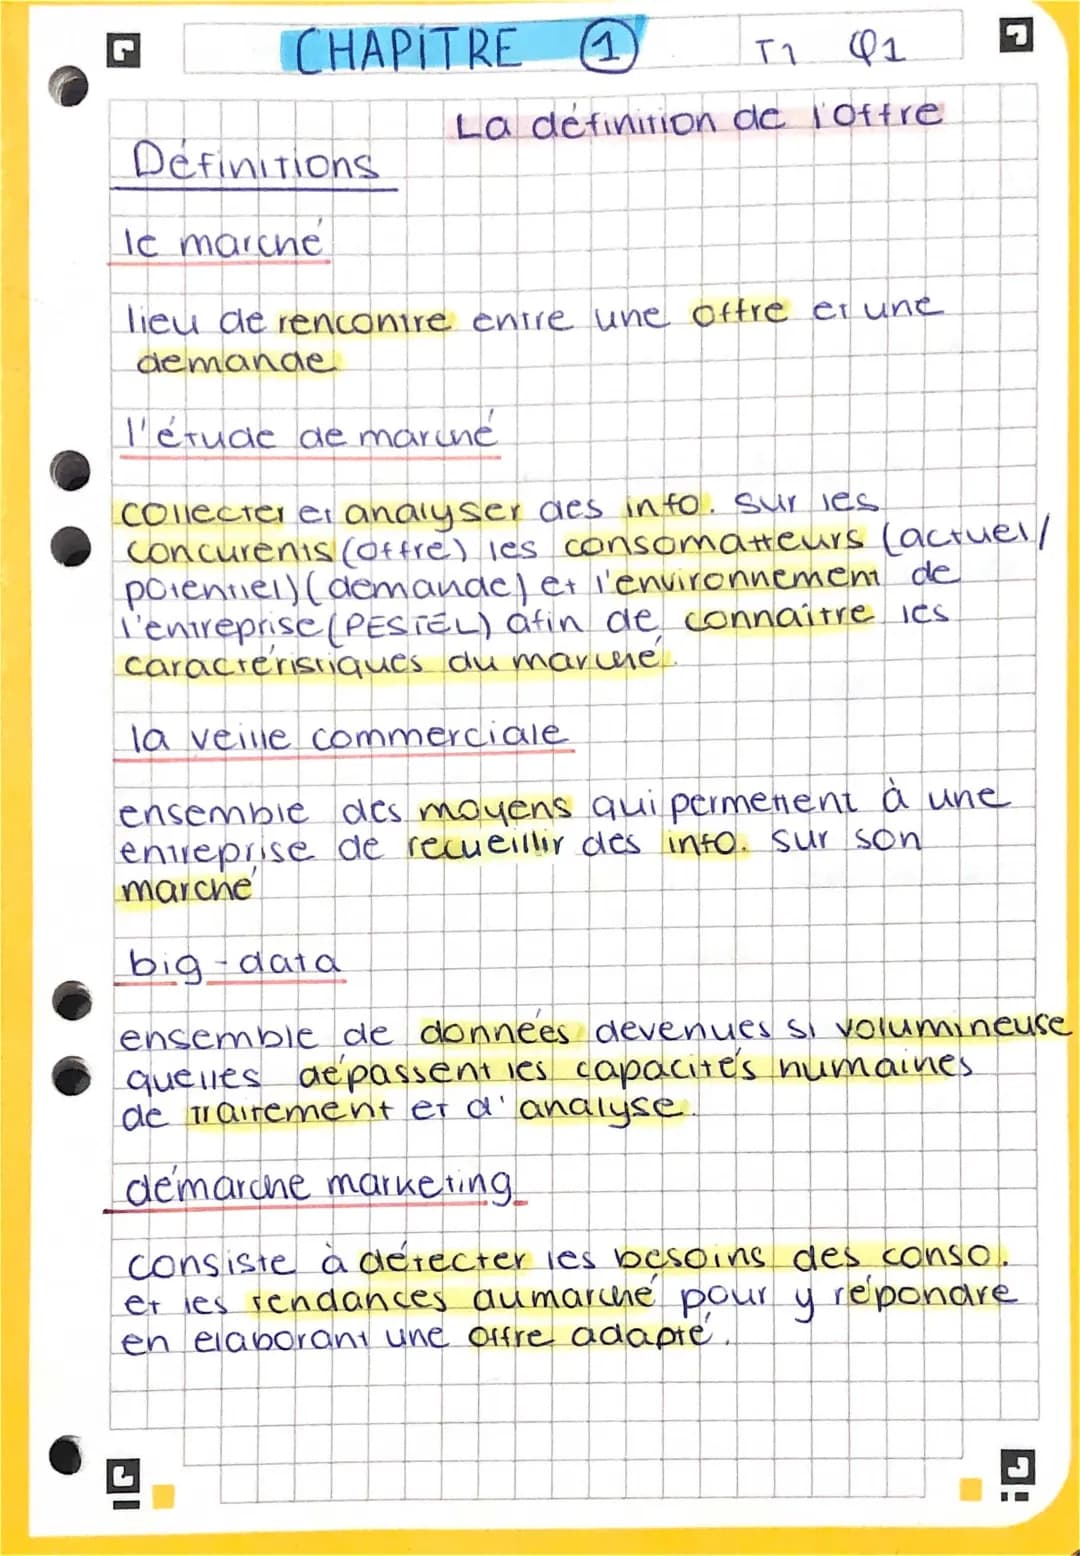 CHAPITRE 1 T1 Q1
La définition de l'offre
Définitions
le marché
lieu de rencontre entre une offre et une
demande
l'étude de marché
collecter et analyser des info. sur les
concurents (offre) les consomatteurs (actuel/
potentiel) (demande) et l'environnement de
l'entreprise (PESTEL) afin de connaître les
caractéristiques du marché.
la veille commerciale
ensemble des moyens qui permettent à une
entreprise de recueillir des info. sur son
marché
big-data
ensemble de données devenues si volumineuse
quelles dépassent les capacités humaines
de traitement et d'analyse.
démarche marketing
consiste à détecter les besoins des conso.
et les tendances du marché pour y répondre
en elaborant une offre adapté.